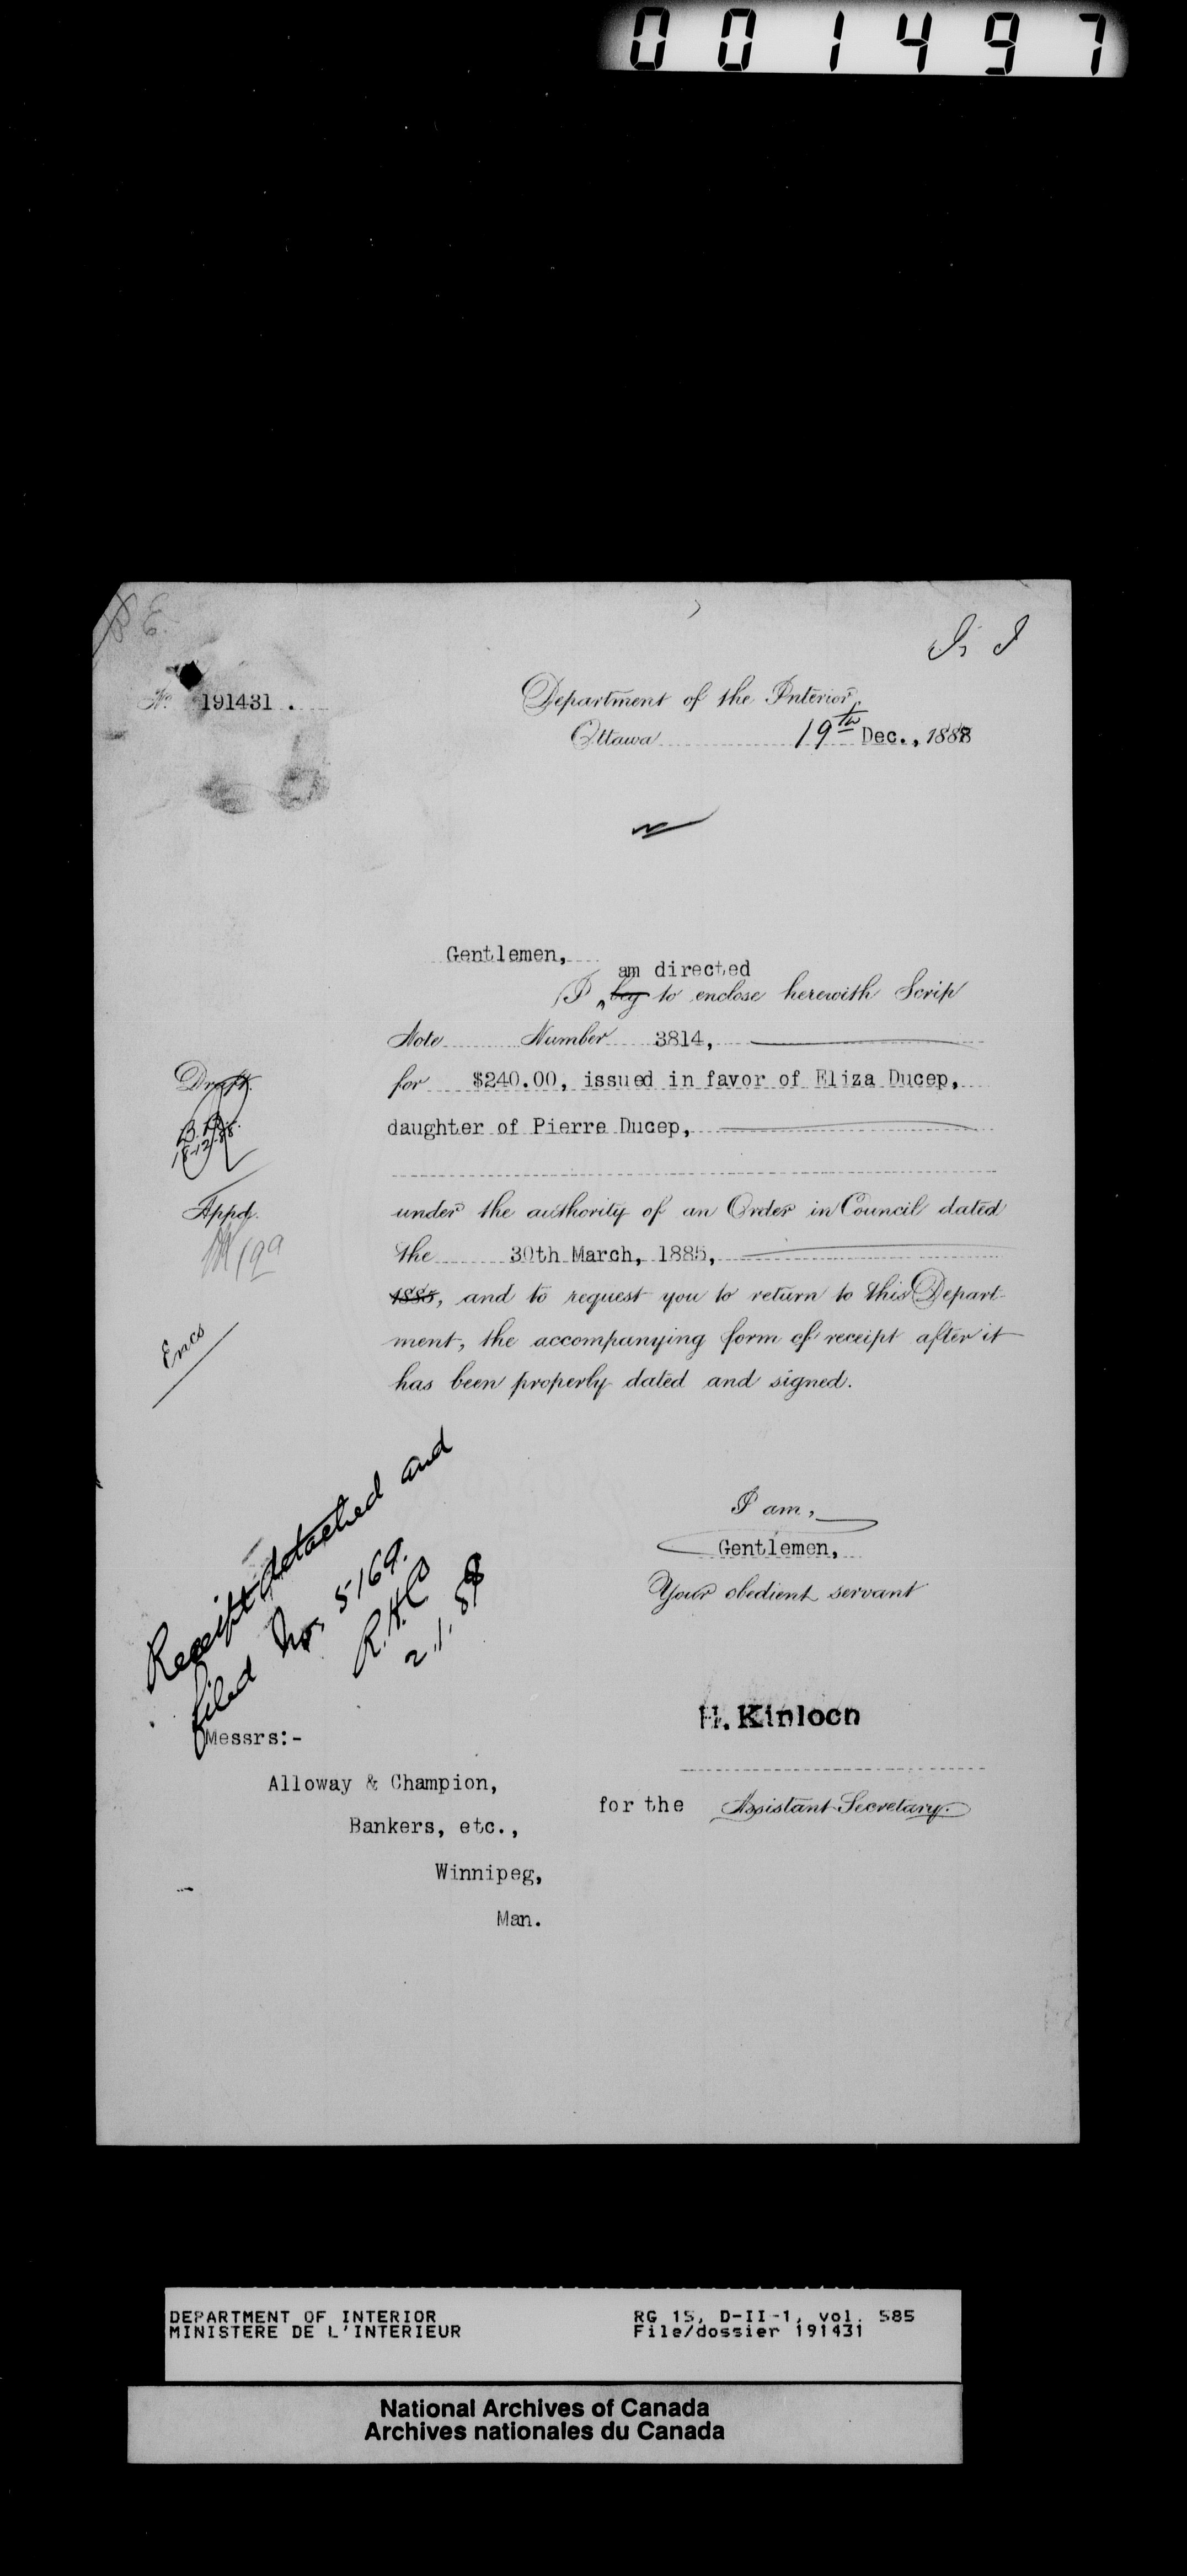 001497
No. 191431.
Department of the Interior,
Ottawa 19th Dec., 1888
Gentlemen,
am directed
I beg to enclose herewith Scrip
Note Number 3814,
for $240.00, issued in favor of Eliza Ducep,
daughter of Pierre Ducep,
under the authority of an Order in Council dated
the 30th March, 1885,
1885, and to request you to return to this Depart-
ment, the accompanying form of receipt after it
has been properly dated and signed.
Draft.
18-12-88.
Appd.
Encs
Receipt detached and
filed No. 5169.
R.H.C
2.1.89
I am,
Gentlemen,
Your obedient servant
H. Kinloch
for the Assistant Secretary.
Messrs:-
Alloway & Champion,
Bankers, etc.,
Winnipeg,
Man.
DEPARTMENT OF INTERIOR
MINISTERE DE L'INTERIEUR
RG 15, D-II-1, vol. 585
File/dossier 191431
National Archives of Canada
Archives nationales du Canada